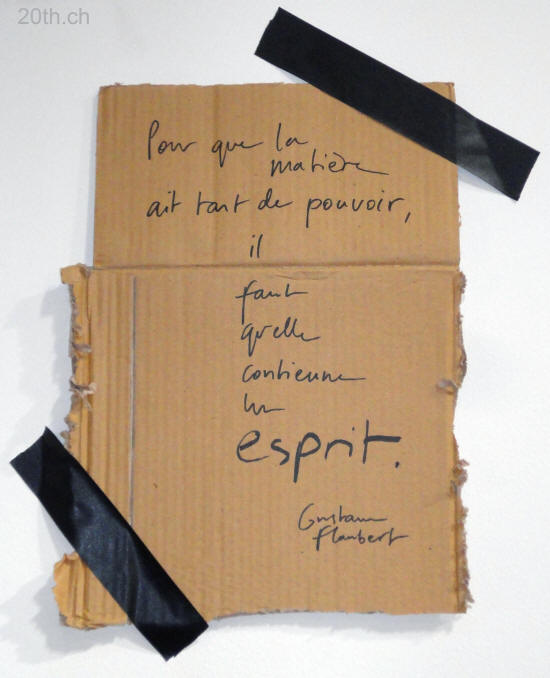 20th.ch
Pour que la
matière
ait tant de pouvoir,
il
faut
qu'elle
contienne
un
esprit.
Gustave
Flaubert